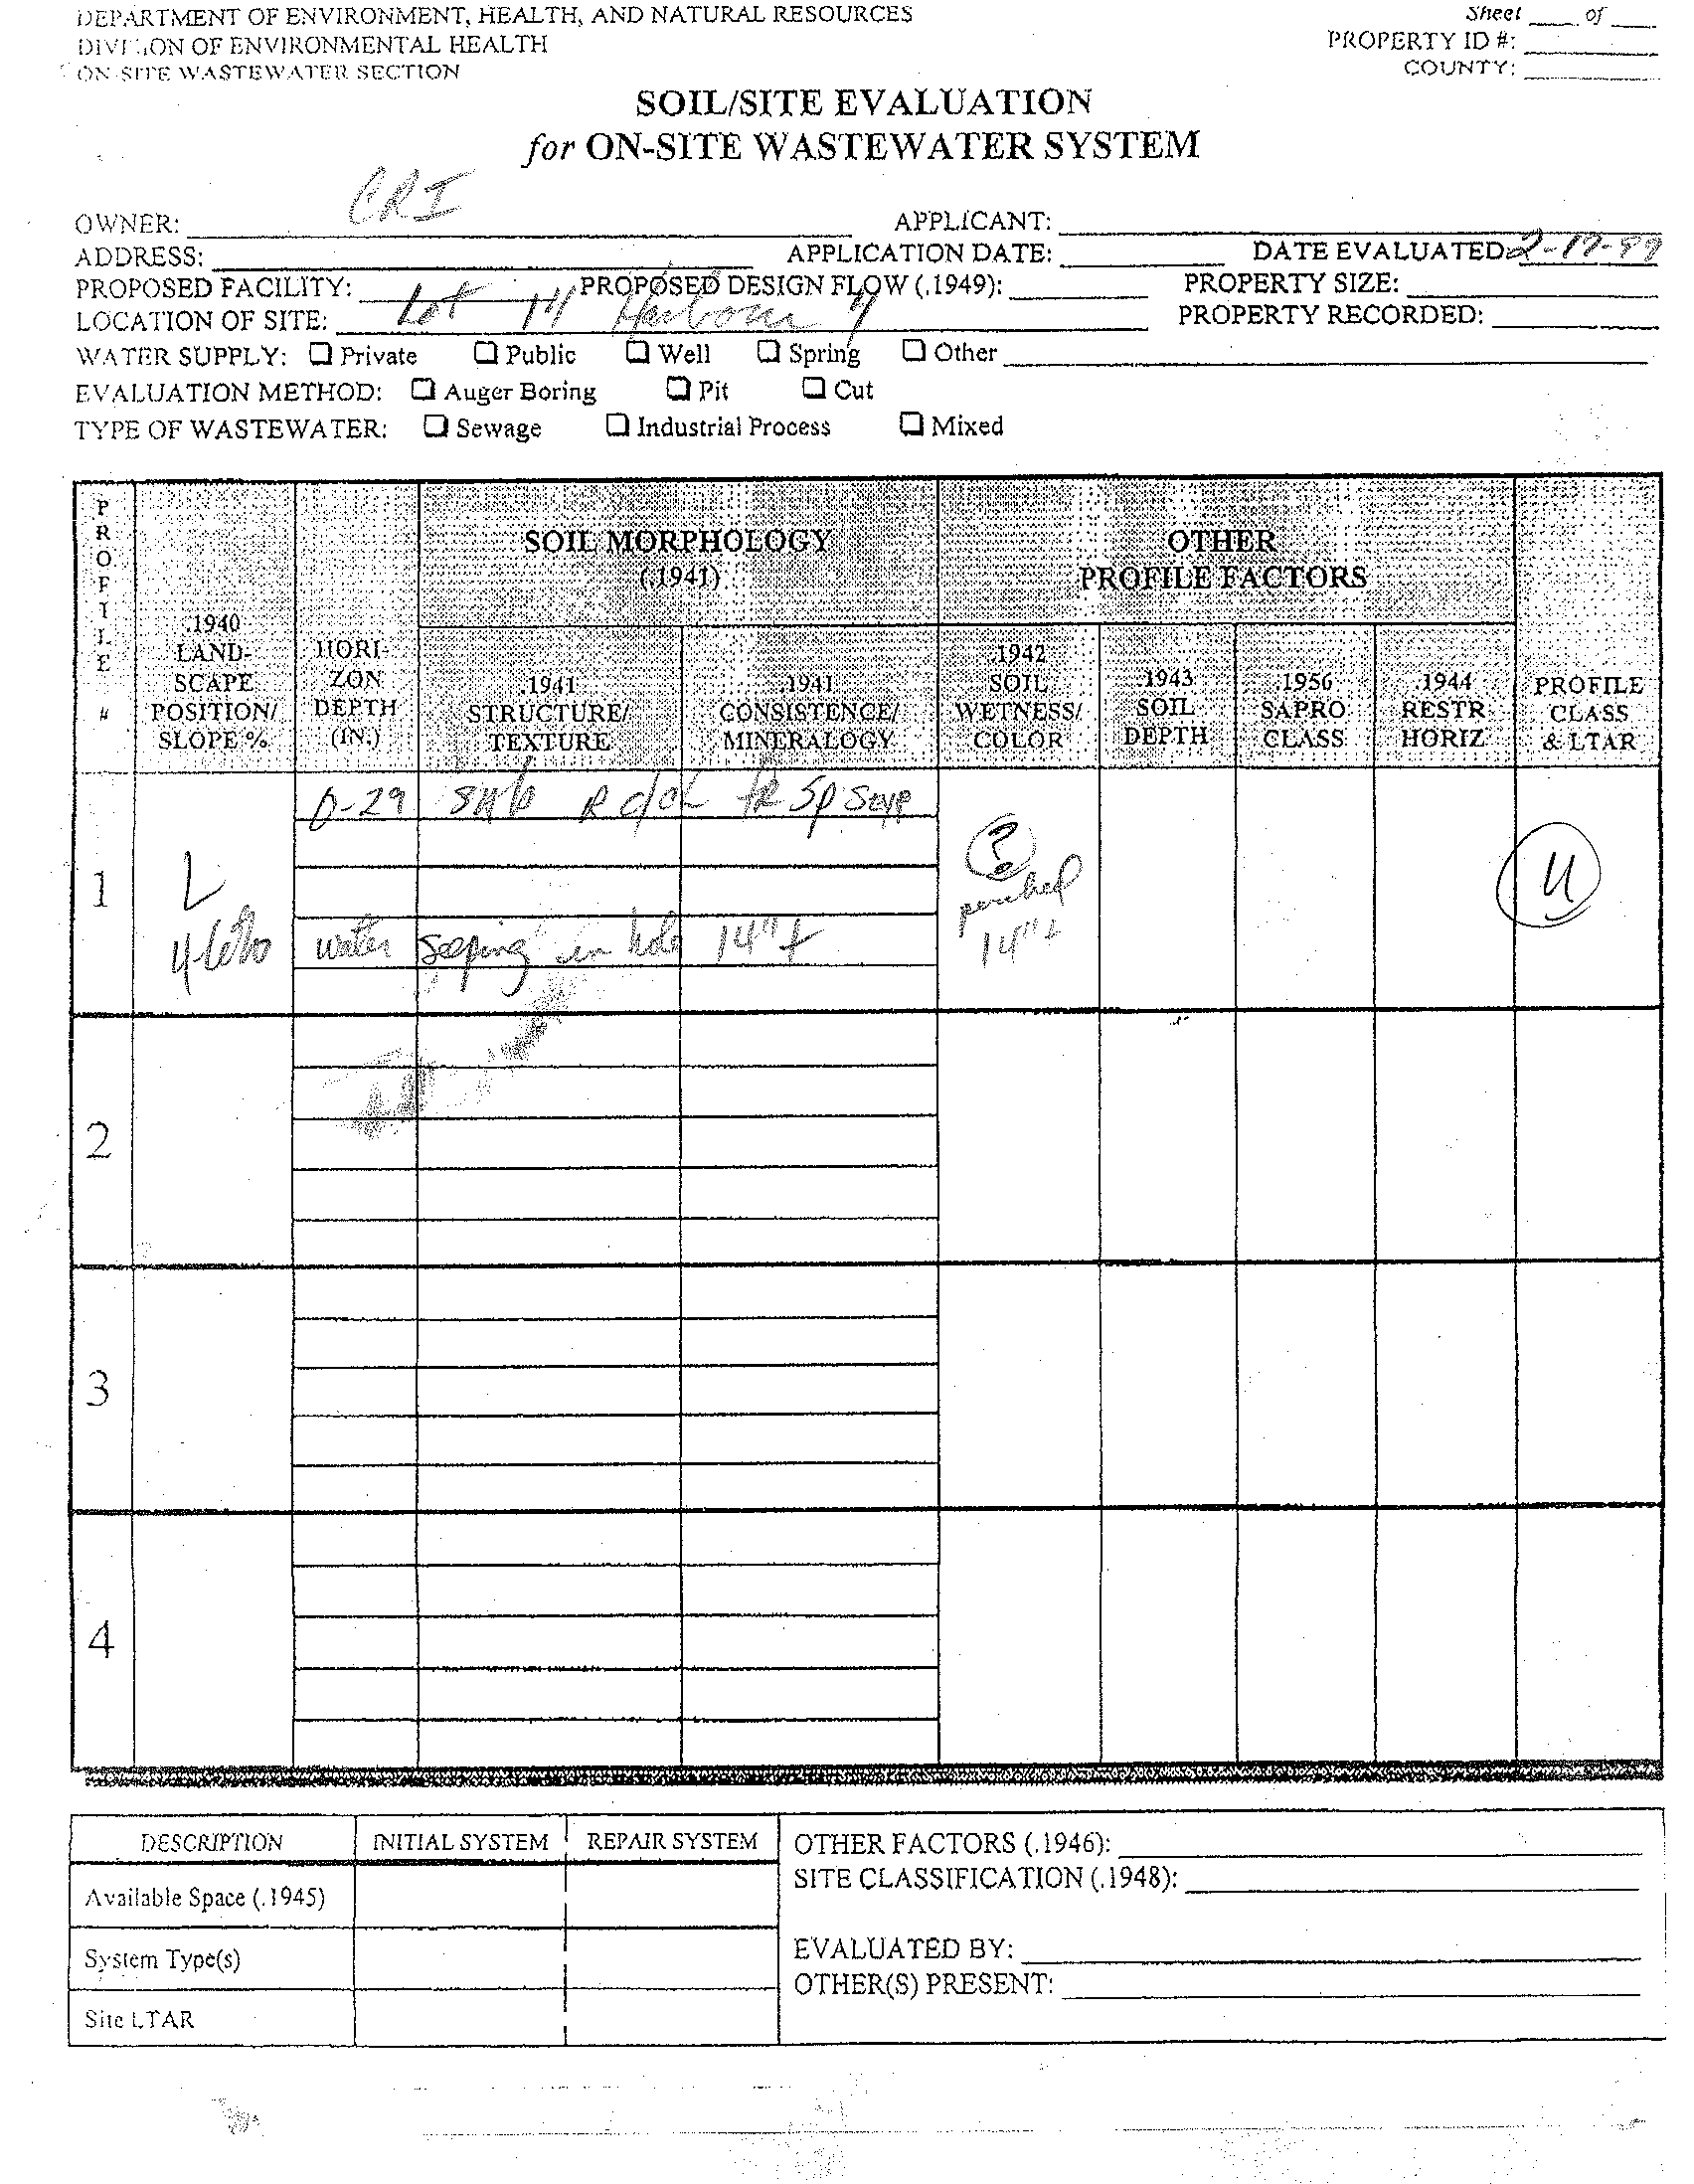 DEPARTMENT OF ENVIRONMENT, HEALTH, AND NATURAL RESOURCES
DIVISION OF ENVIRONMENTAL HEALTH
ON-SITE WASTEWATER SECTION
Sheet ____ of ____
PROPERTY ID #:
COUNTY:
SOIL/SITE EVALUATION
for ON-SITE WASTEWATER SYSTEM
OWNER: CRI APPLICANT:
ADDRESS: APPLICATION DATE: DATE EVALUATED:
PROPOSED FACILITY: PROPOSED DESIGN FLOW (.1949): PROPERTY SIZE:
LOCATION OF SITE: Lot 14 Harbour PROPERTY RECORDED:
WATER SUPPLY: ☐ Private ☐ Public ☐ Well ☐ Spring ☐ Other
EVALUATION METHOD: ☐ Auger Boring ☐ Pit ☐ Cut
TYPE OF WASTEWATER: ☐ Sewage ☐ Industrial Process ☐ Mixed
PROFILE #
.1940 LAND-SCAPE POSITION/ SLOPE %
HORI-ZON DEPTH (IN.)
SOIL MORPHOLOGY (.1941)
.1941 STRUCTURE/ TEXTURE
.1941 CONSISTENCE/ MINERALOGY
OTHER PROFILE FACTORS
.1942 SOIL WETNESS/ COLOR
.1943 SOIL DEPTH
.1956 SAPRO CLASS
.1944 RESTR HORIZ
PROFILE CLASS & LTAR
1
L
0-29
water seeping in hole 14"±
?
perched
14"±
U
2
3
4
DESCRIPTION INITIAL SYSTEM REPAIR SYSTEM
Available Space (.1945)
System Type(s)
Site LTAR
OTHER FACTORS (.1946):
SITE CLASSIFICATION (.1948):
EVALUATED BY:
OTHER(S) PRESENT: